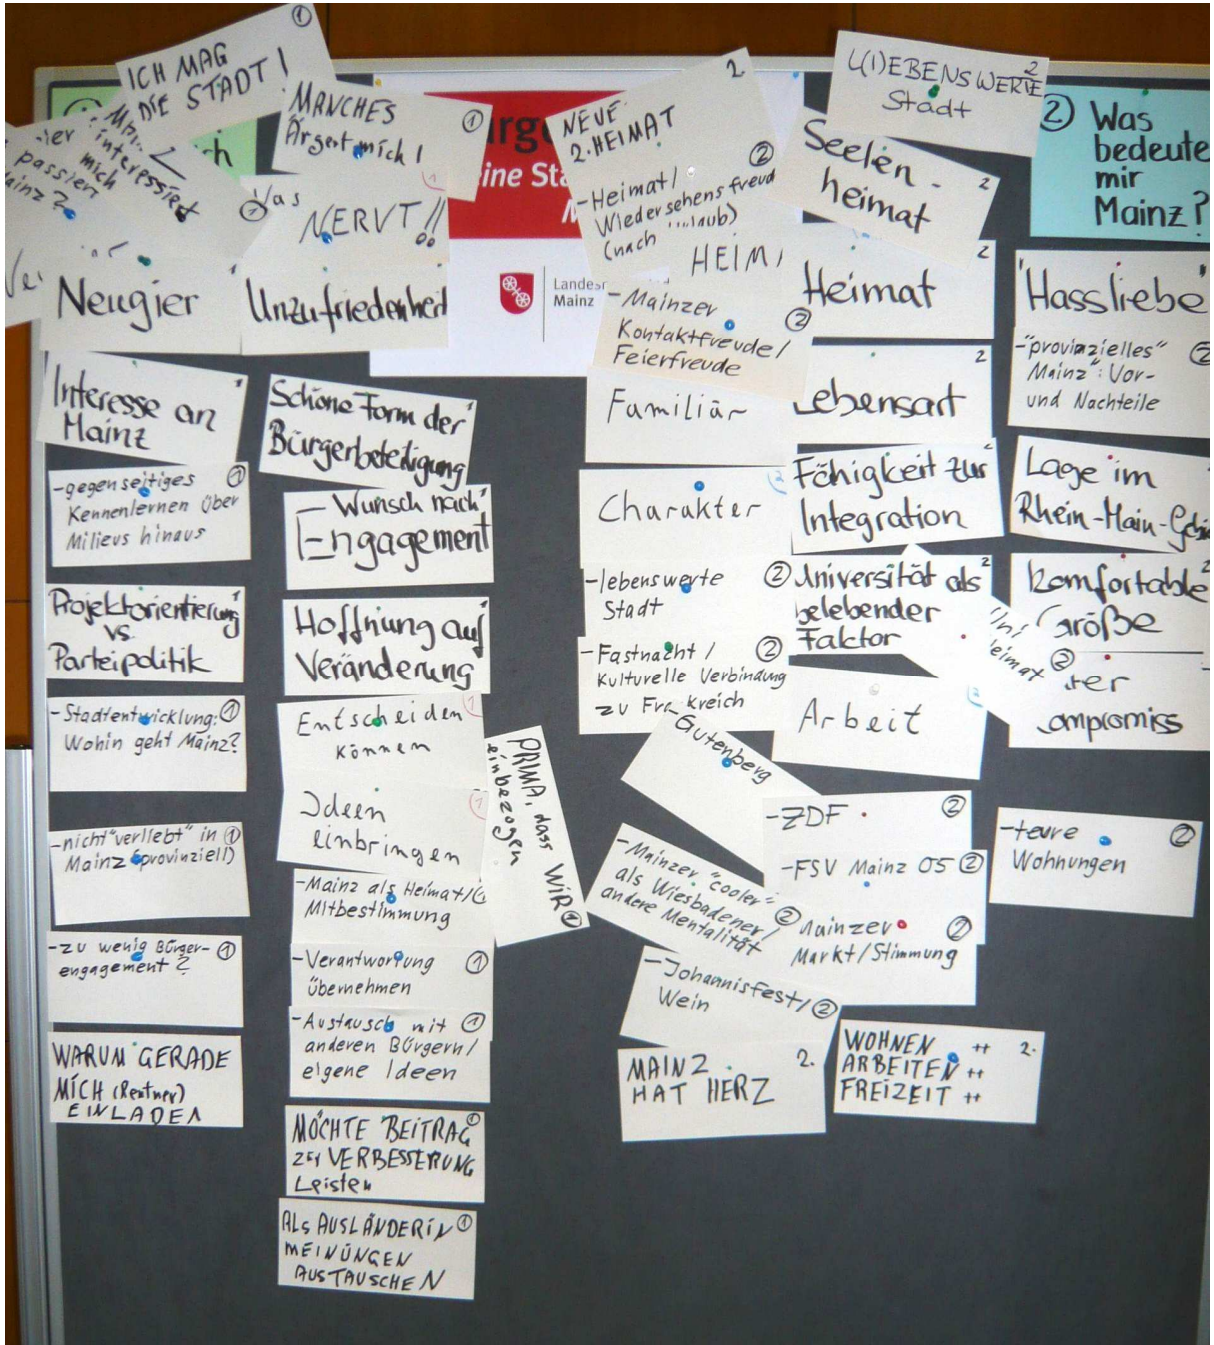 ICH MAG
DIE STADT!
1
MANCHES
Ärgert mich!
1
interessiert
mich
passiert
Mainz?
1
NERVT!!
1
Neugier
1
Unzufriedenheit
Interesse an
Mainz
1
Schöne Form der
Bürgerbeteiligung
1
-gegenseitiges
Kennenlernen über
Milieus hinaus
1
Wunsch nach
Engagement
1
Projektorientierung
vs.
Parteipolitik
1
Hoffnung auf
Veränderung
1
-Stadtentwicklung:
Wohin geht Mainz?
1
Entscheiden
können
1
Ideen
einbringen
1
PRIMA, dass WIR
einbezogen
1
-nicht "verliebt" in
Mainz (provinziell)
1
-Mainz als Heimat/
Mitbestimmung
1
-zu wenig Bürger-
engagement?
1
-Verantwortung
übernehmen
1
-Austausch mit
anderen Bürgern/
eigene Ideen
1
WARUM GERADE
MICH (Rentner)
EINLADEN
MÖCHTE BEITRAG
ZUR VERBESSERUNG
Leisten
1
ALS AUSLÄNDERIN
MEINUNGEN
AUSTAUSCHEN
1
ine Sta
Mainz
NEUE
2. HEIMAT
2.
-Heimat/
Wiedersehensfreud
(nach
2
HEIM
-Mainzer
Kontaktfreude/
Feierfreude
2
Familiär
Charakter
2
-lebenswerte
Stadt
2
-Fastnacht/
Kulturelle Verbindung
zu
2
Gutenberg
-Mainzer "cooler"
als Wiesbadener/
andere Mentalität
2
-Johannisfest/
Wein
2
MAINZ
HAT HERZ
2.
L(I)EBENSWERTE
Stadt
2
Seelen-
heimat
2
Heimat
2
Lebensart
2
Fähigkeit zur
Integration
2
Universität als
belebender
Faktor
2
Uni
Heimat
2
Arbeit
2
-ZDF
2
-FSV Mainz 05
2
Mainzer
Markt/Stimmung
2
WOHNEN ++
ARBEITEN ++
FREIZEIT ++
2.
2 Was
bedeute
mir
Mainz?
Hassliebe
-"provinzielles"
Mainz": Vor-
und Nachteile
2
Lage im
Rhein-Main-Gebie
komfortable
Größe
2
ompromiss
-teure
Wohnungen
2